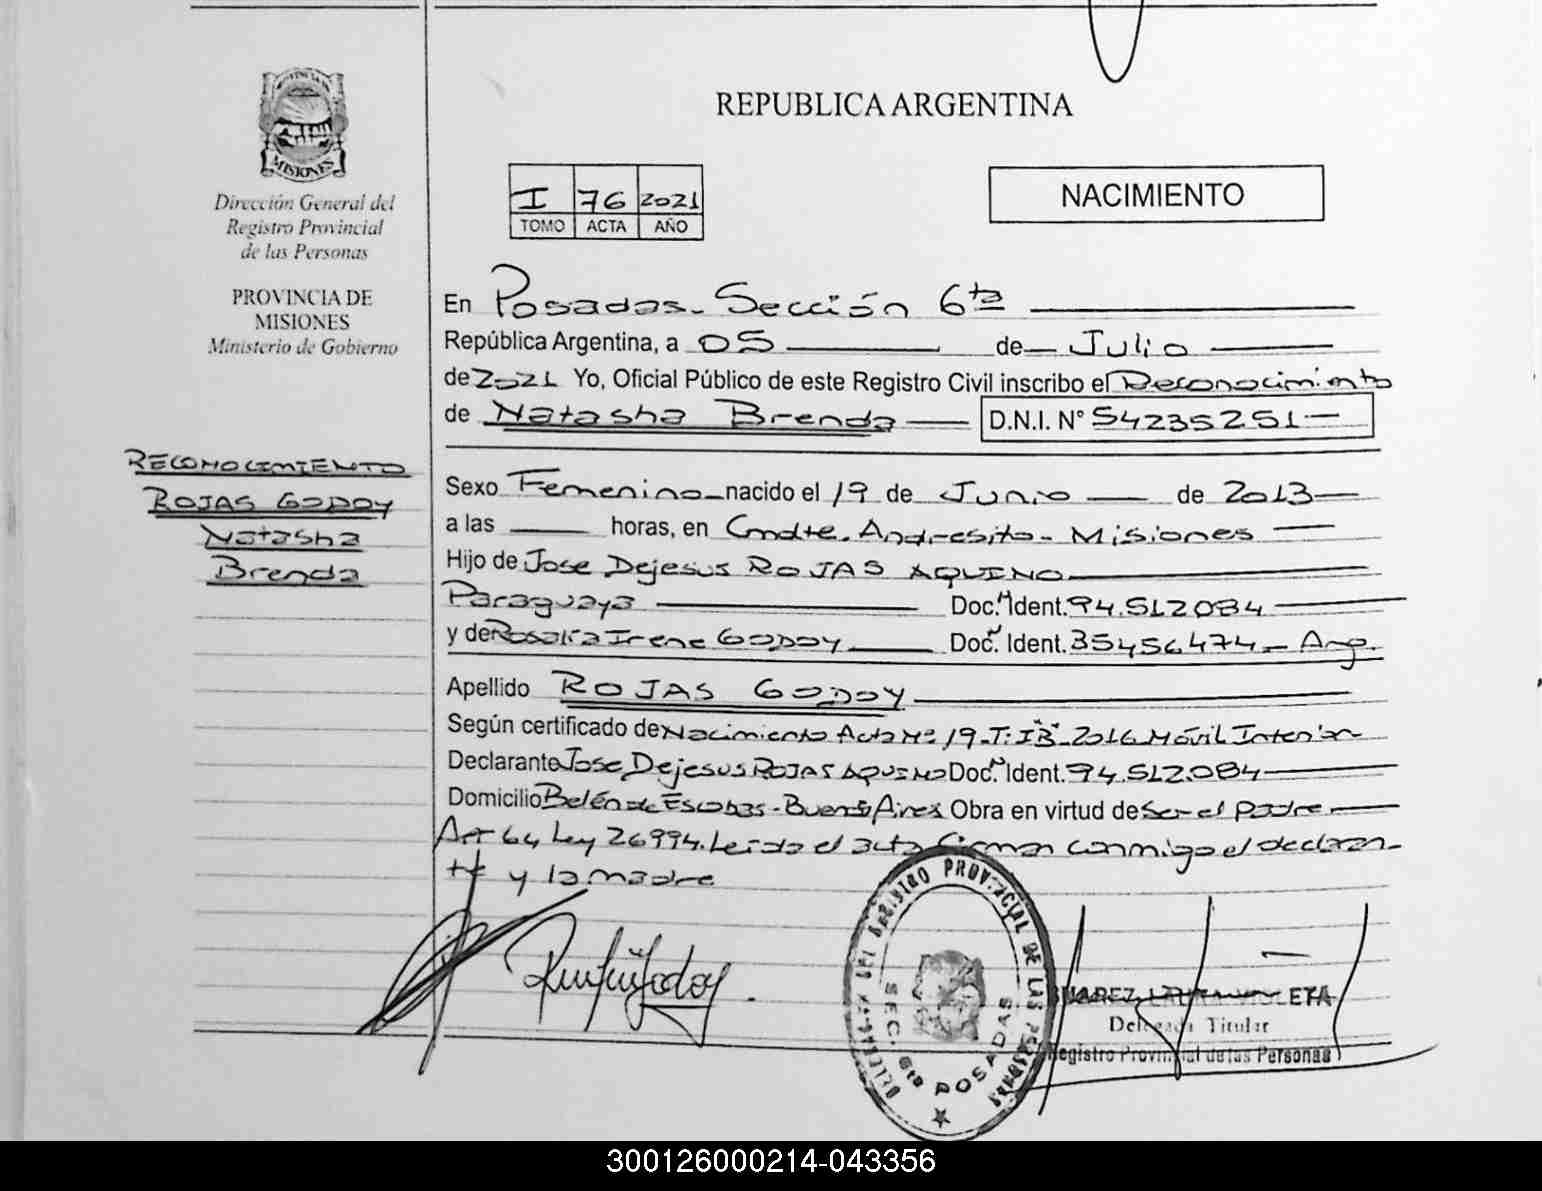 REPUBLICA ARGENTINA
PROVINCIA DE
MISIONES
Dirección General del
Registro Provincial
de las Personas
PROVINCIA DE
MISIONES
Ministerio de Gobierno
I 76 2021
TOMO ACTA AÑO
NACIMIENTO
En Posadas - Sección 6ta
República Argentina, a 05 de Julio
de 2021 Yo, Oficial Público de este Registro Civil inscribo el Reconocimiento
de Natasha Brenda D.N.I. Nº 54235251
RECONOCIMIENTO
ROJAS GODOY
Natasha
Brenda
Sexo Femenino nacido el 19 de Junio de 2013
a las horas, en Cmdte. Andresito - Misiones
Hijo de Jose Dejesus ROJAS AQUINO
Paraguaya Doc. Ident. 94.512084
y de Rosalia Irene GODOY Doc. Ident. 35456474 - Arg.
Apellido ROJAS GODOY
Según certificado de Nacimiento Acta Nº 19 - T: I"B" - 2016 Móvil Interior
Declarante Jose Dejesus ROJAS AQUINO Doc. Ident. 94.512.084
Domicilio Belén de Escobar - Buenos Aires Obra en virtud de ser el padre
Art 64 Ley 26994. Leida el acta firman conmigo el declaran-
te y la madre
DEL REGISTRO PROVINCIAL DE LAS PERSONAS
SEC. 6ta POSADAS
SUAREZ, LAURA VIOLETA
Delegada Titular
Registro Provincial de las Personas
300126000214-043356